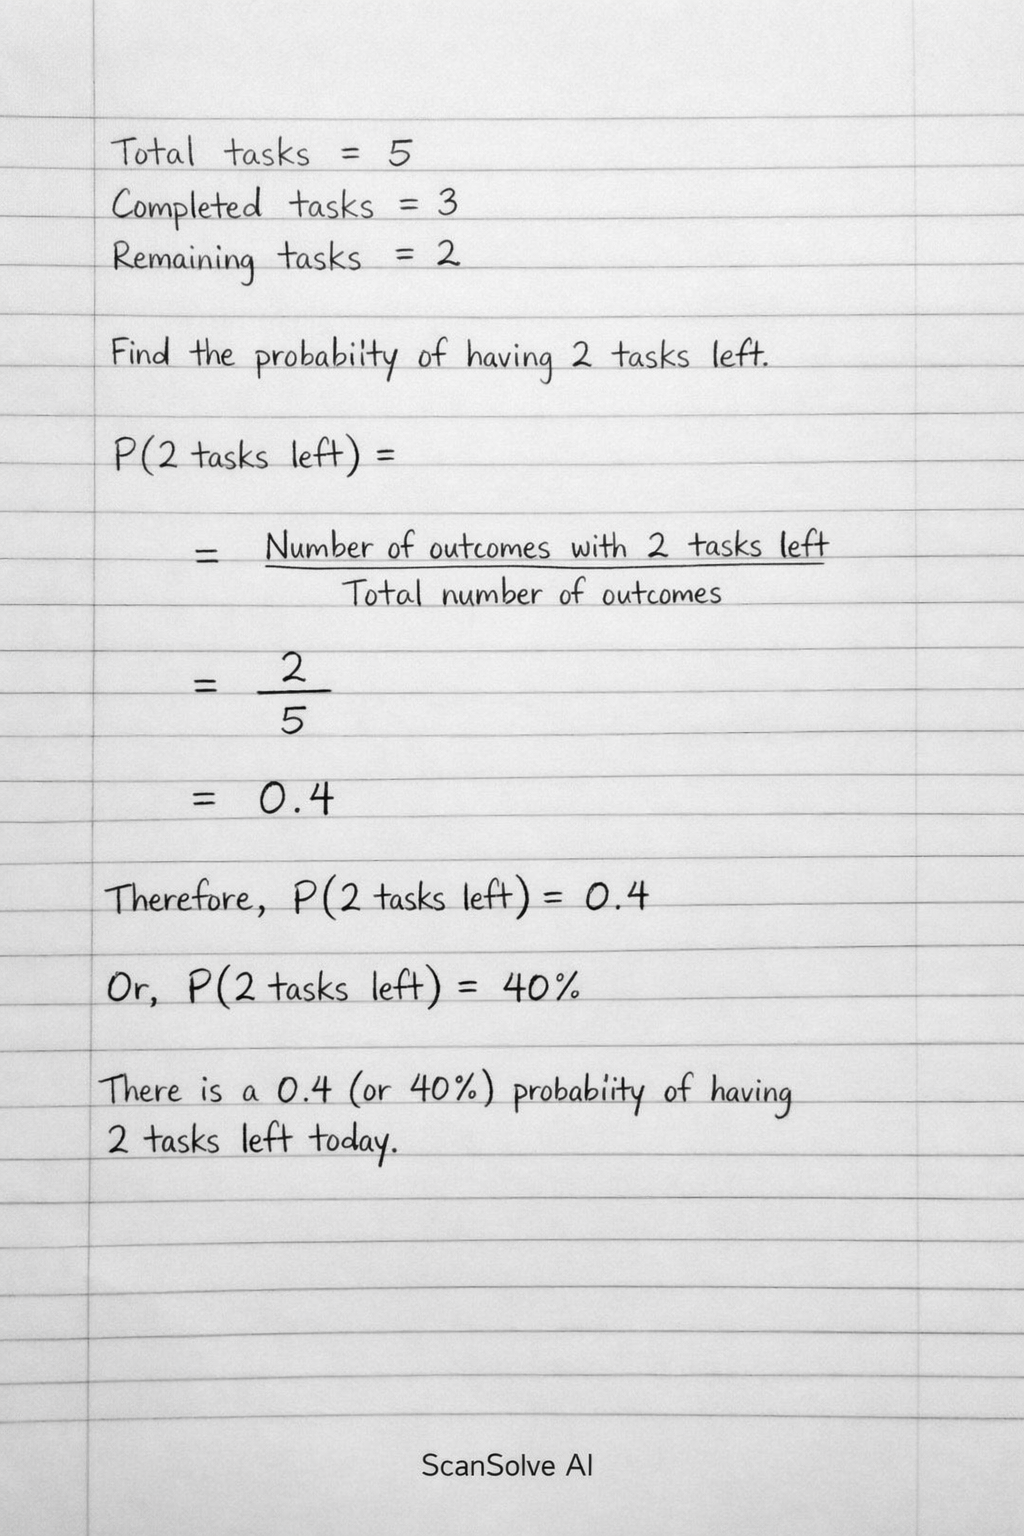 Total tasks = 5
Completed tasks = 3
Remaining tasks = 2
Find the probabiity of having 2 tasks left.
P(2 tasks left) =
= Number of outcomes with 2 tasks left
Total number of outcomes
= 2
5
= 0.4
Therefore, P(2 tasks left) = 0.4
Or, P(2 tasks left) = 40%
There is a 0.4 (or 40%) probabiity of having
2 tasks left today.
ScanSolve AI